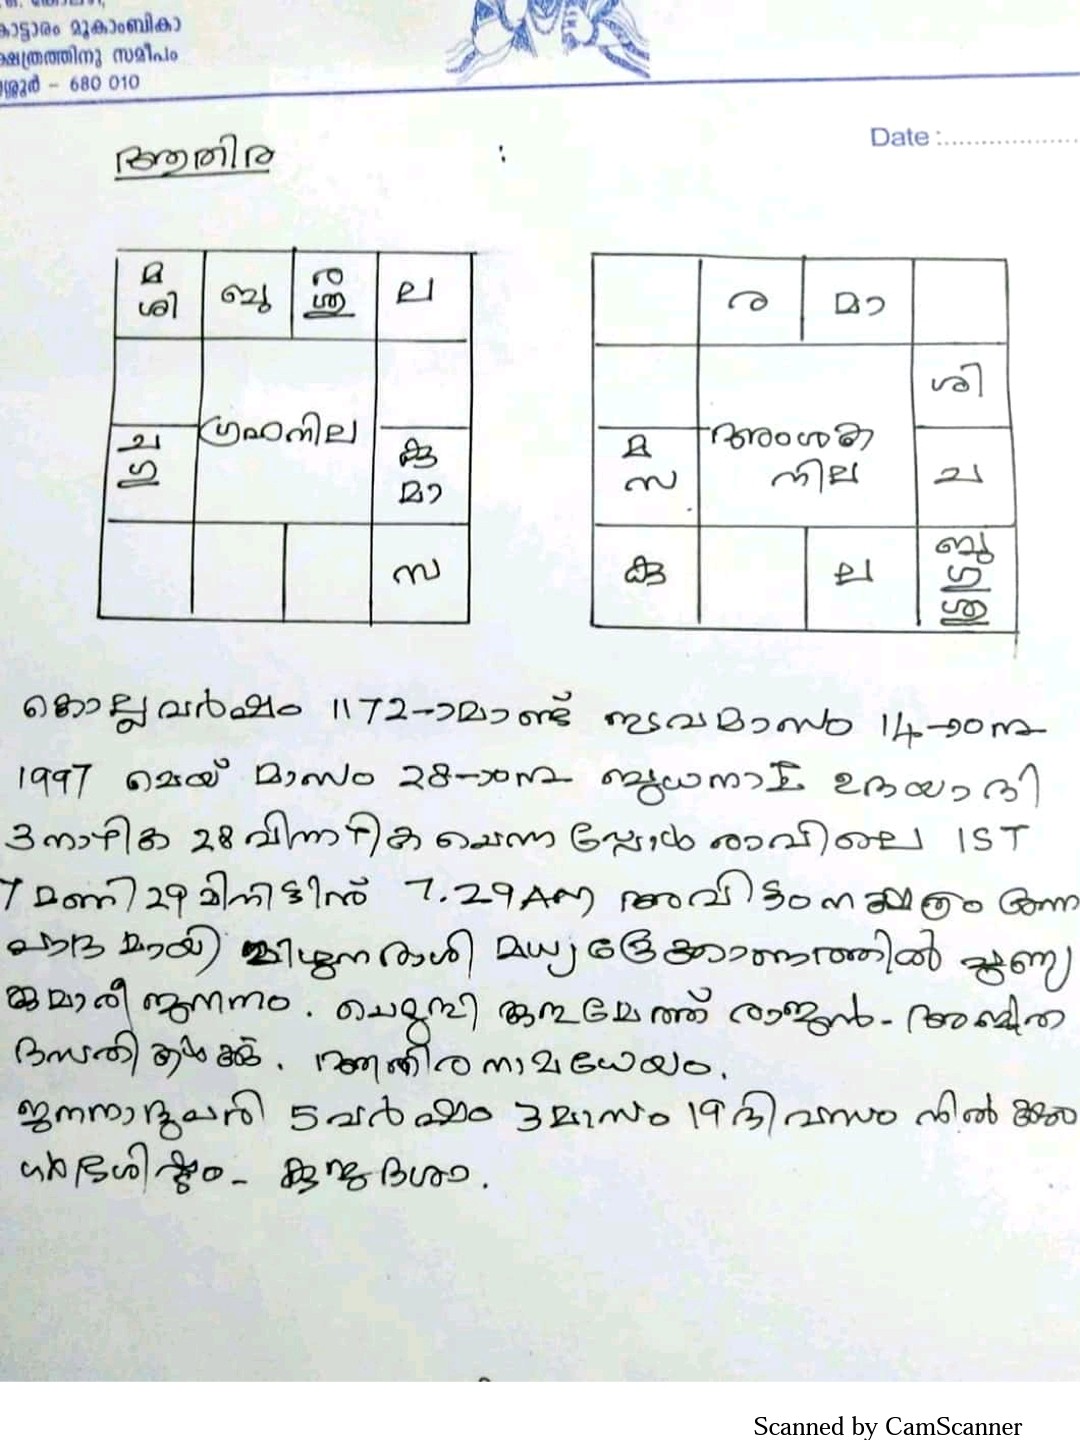 കാട്ടാരം മൂകാംബികാ
ക്ഷേത്രത്തിനു സമീപം
– 680 010
Date :
ആതിര :
മ ബു ര ല
ശി ശു
ഗ്രഹനില
ച കു
ഗു മാ
സ
ര മാ
ശി
അംശക
നില
മ ച
സ
കു ല ബു
ഗു
ശു
കൊല്ലവർഷം 1172-ാമാണ്ട് ഇടവമാസം 14-ാംനു
1997 മെയ് മാസം 28-ാംനു ബുധനാഴ്ച ഉദയാദി
3 നാഴിക 28 വിനാഴിക ചെന്നപ്പോൾ രാവിലെ IST
7 മണി 29 മിനിട്ടിന് 7.29 AM അവിട്ടം നക്ഷത്രം
പാദമായി മിഥുനരാശി മധ്യദ്രേക്കാണത്തിൽ പുണ്യ
കുമാരീ ജനനം. രാജൻ -
ദമ്പതികൾക്ക്. ആതിര നാമധേയം.
ജനനാൽപരി 5 വർഷം 3 മാസം 19 ദിവസം നിൽ
ഗർഭശിഷ്ടം - കുജദശാ.
Scanned by CamScanner